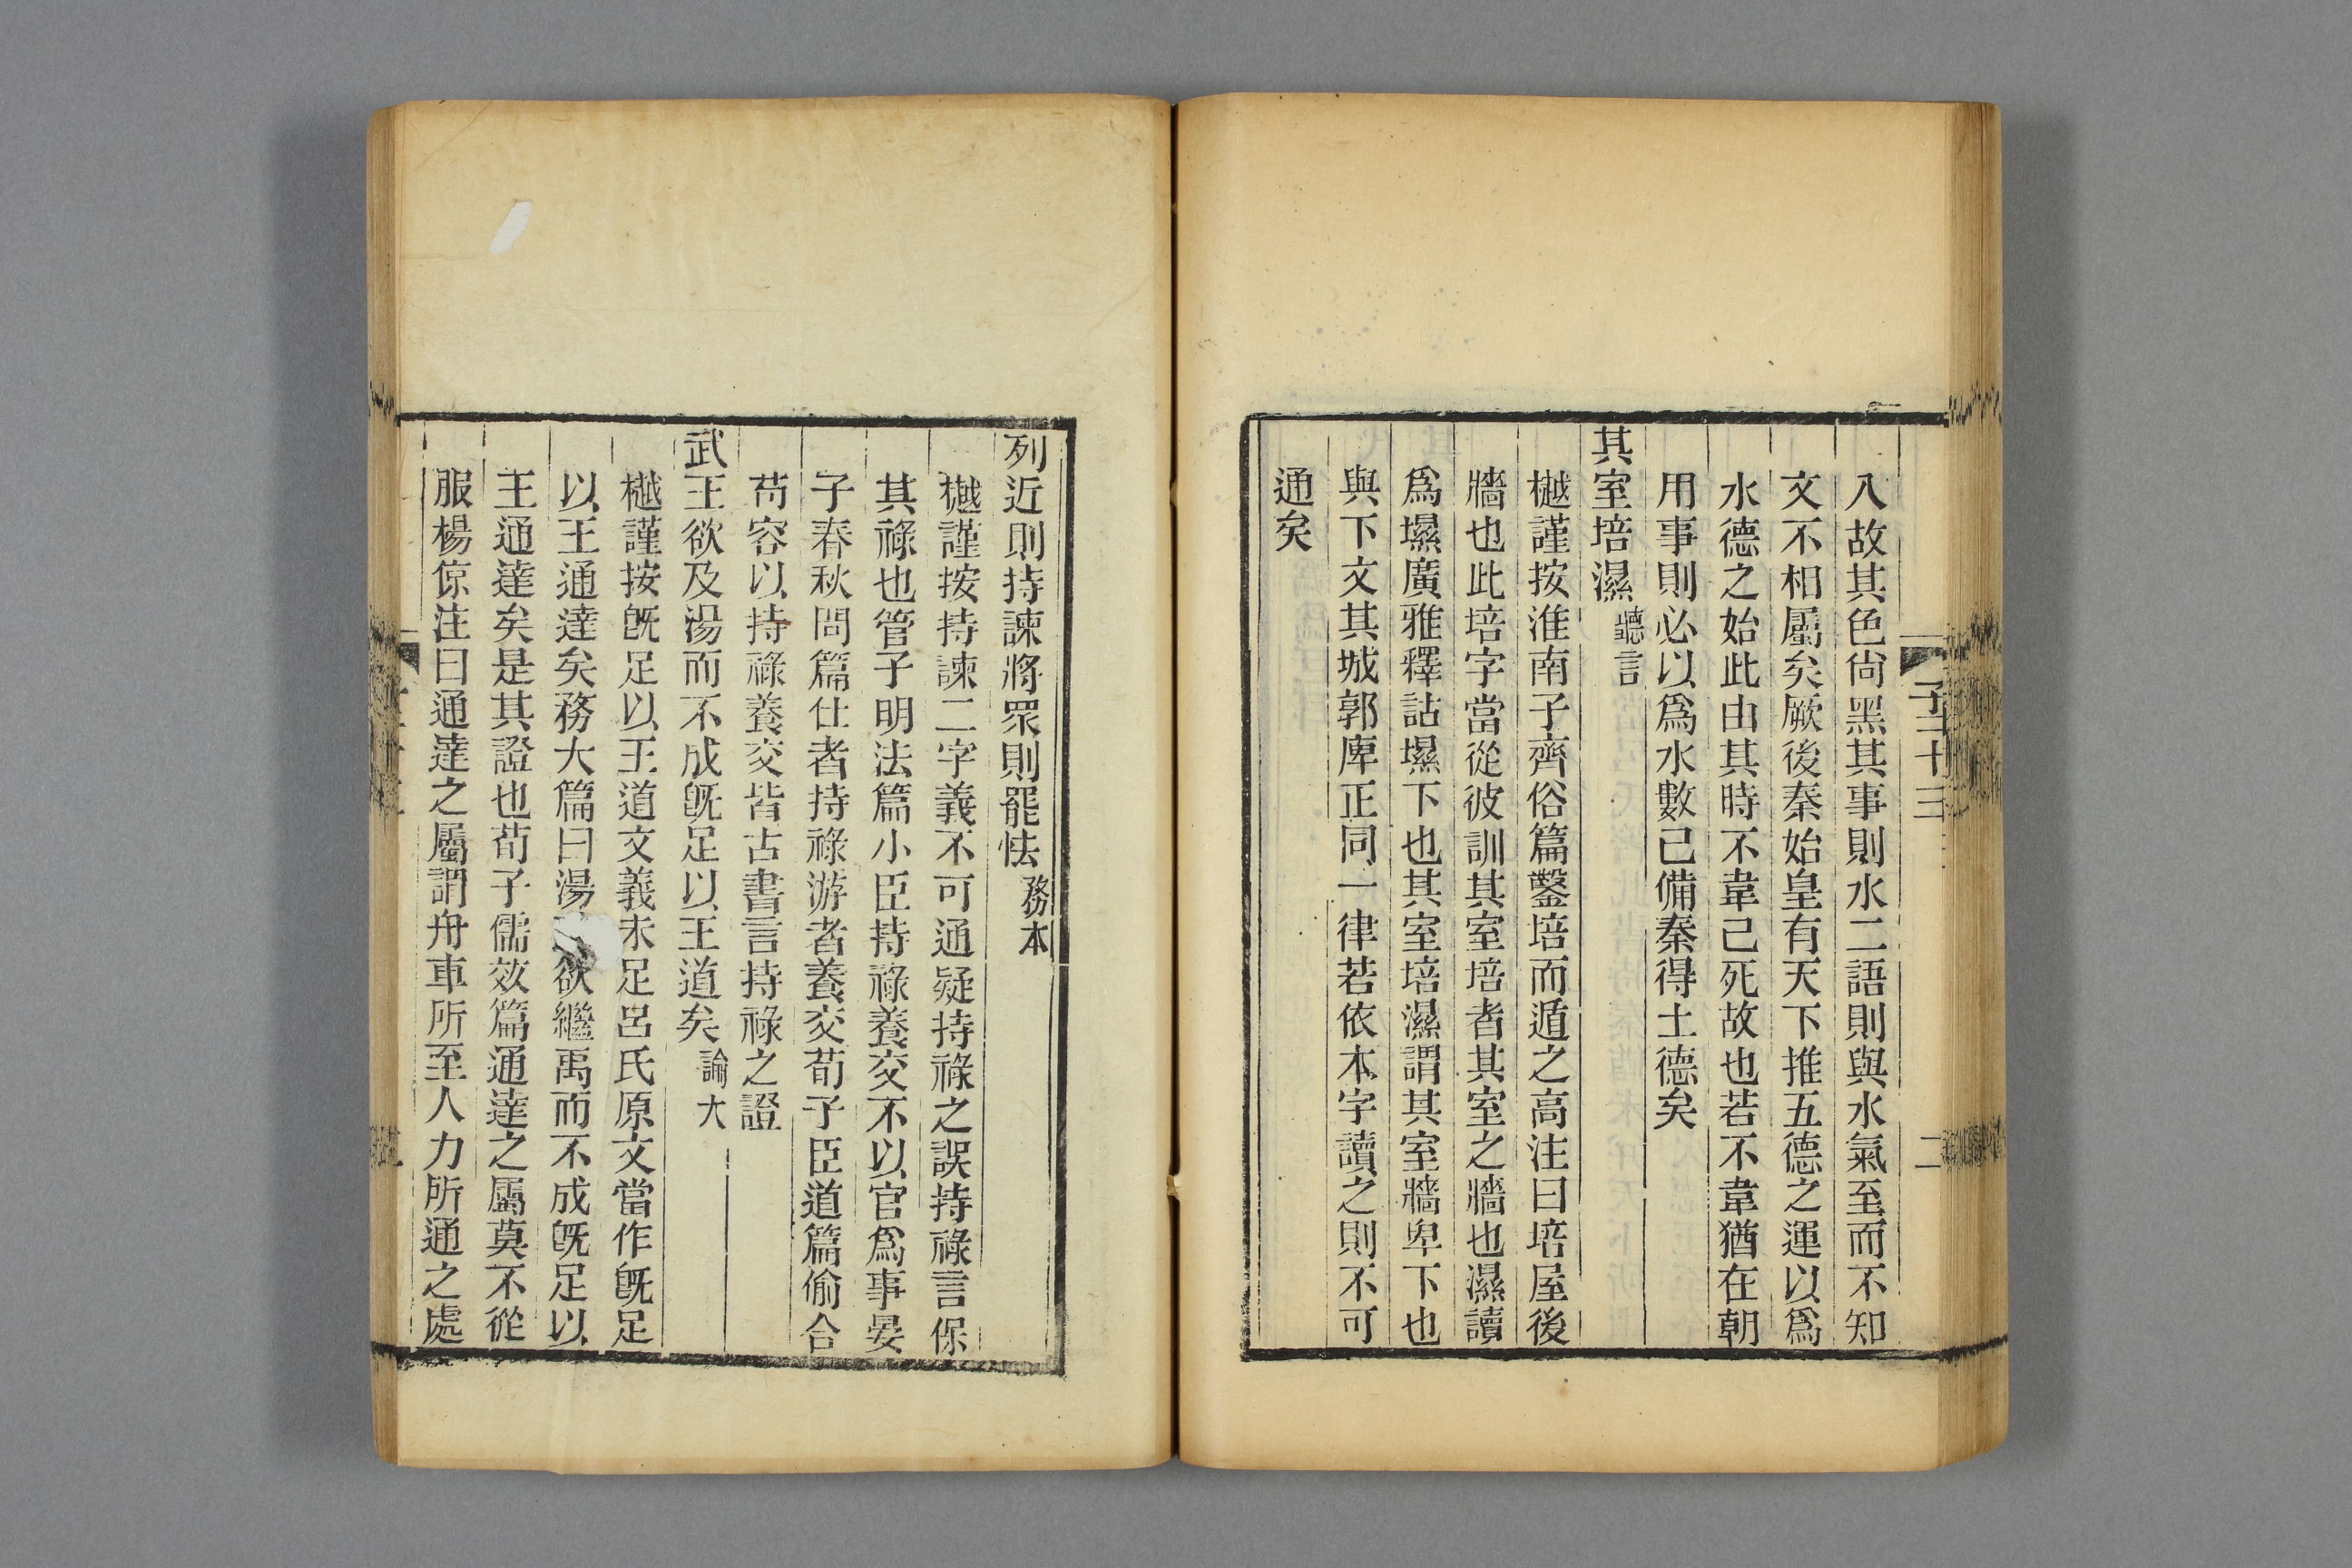 子二十三
二
入故其色尙黑其事則水二語則與水氣至而不知
文不相屬矣厥後秦始皇有天下推五德之運以爲
水德之始此由其時不韋已死故也若不韋猶在朝
用事則必以爲水數已備秦得土德矣
其室培濕聽言
樾謹按淮南子齊俗篇鑿培而遁之高注曰培屋後
牆也此培字當從彼訓其室培者其室之牆也濕讀
爲㙷廣雅釋詁㙷下也其室培濕謂其室牆卑下也
與下文其城郭庳正同一律若依本字讀之則不可
通矣
列近則持諫將眾則罷怯務本
樾謹按持諫二字義不可通疑持祿之誤持祿言保
其祿也管子明法篇小臣持祿養交不以官爲事晏
子春秋問篇仕者持祿游者養交荀子臣道篇偷合
苟容以持祿養交皆古書言持祿之證
武王欲及湯而不成旣足以王道矣論大
樾謹按旣足以王道文義未足呂氏原文當作旣足
以王通達矣務大篇曰湯欲繼禹而不成旣足以
王通達矣是其證也荀子儒效篇通達之屬莫不從
服楊倞注曰通達之屬謂舟車所至人力所通之處